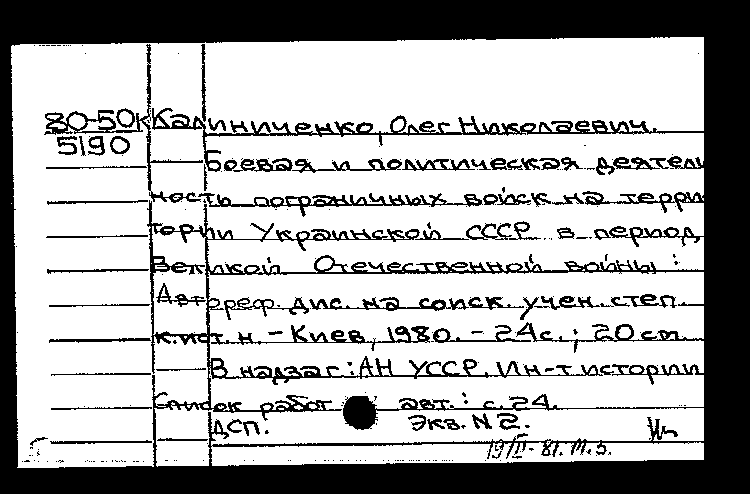 80-50к Калиниченко, Олег Николаевич.
5190
Боевая и политическая деятель
ность пограничных войск на терри
тории Украинской СССР в период
Великой Отечественной войны :
Автореф. дис. на соиск. учен. степ.
к.ист. н. - Киев, 1980. - 24с. ; 20 см.
В надзаг: АН УССР. Ин-т истории
Список работ авт. : с. 24.
ДСП. Экз. N 2.
19/III- 81. М.З.